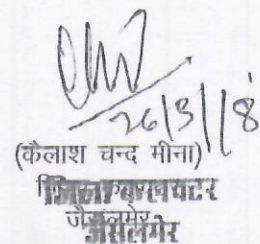 26/3/18
(कैलाश चन्द मीना)
जिला कलक्टर
जैसलमेर
जैसलमेर